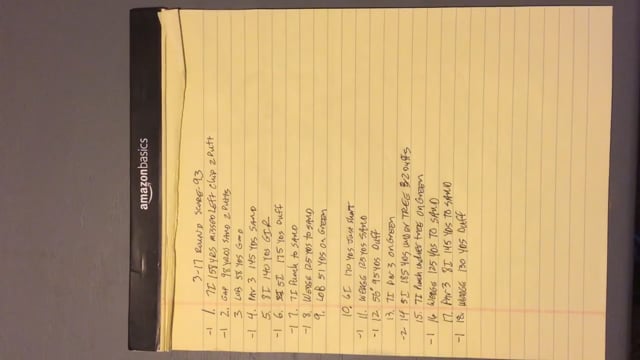 amazonbasics
3-17 ROUND SCORE 93
-1 1. 7I 155 YRS MISSED LEFT CHIP 2 PUTT
-1 2. GAP 98 YRDS SAND 2 PUTTS
3. LOB 58 YDS GOOD
-1 4. PAR 3 145 YDS SAND
5. 8I 140 YDS GIR
-1 6. 5I 175 YDS DUFF
-1 7. 7I PUNCH TO SAND
-1 8. WEDGE 125 YDS TO SAND
9. LOB 51 YDS ON GREEN
10. 6I 170 YDS JUST SHORT
-1 11. WEDGE 125 YDS SAND
-1 12. 55° 95 YDS DUFF
13. 7I PAR 3 ON GREEN
-2 14. 5I 185 YDS UNDER TREE 2 DUFFS
15. 7I PUNCH UNDER TREE ON GREEN
-1 16. WEDGE 125 YDS TO SAND
17. PAR 3 8I 145 YDS TO SAND
-1 18. WEDGE 130 YDS DUFF